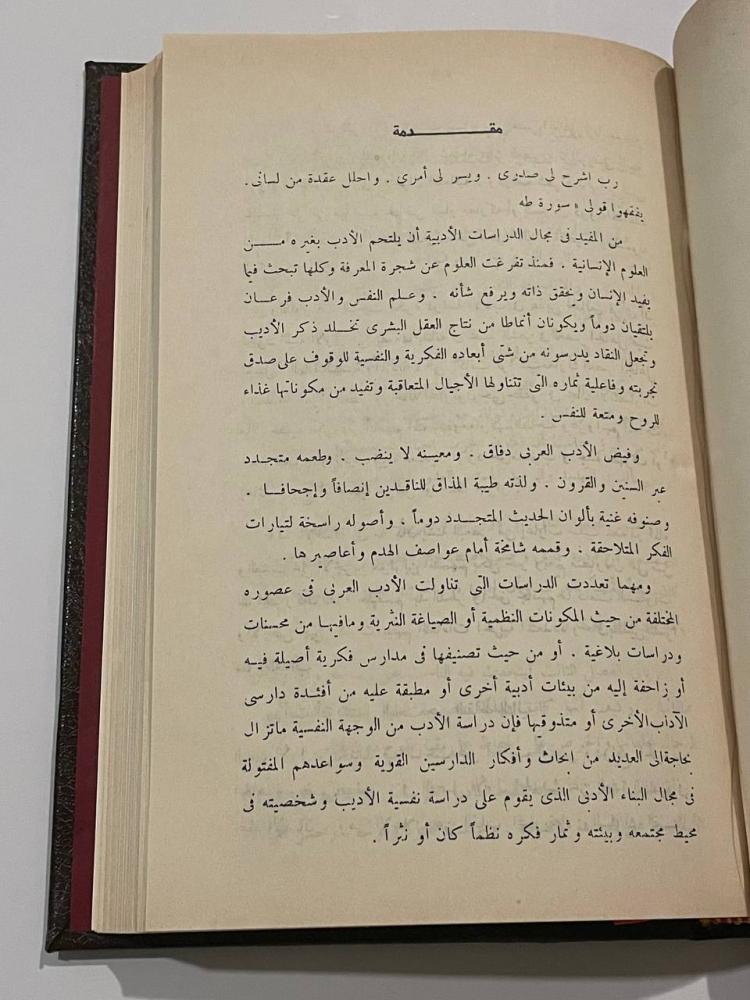 مقـــــــــدمة
رب اشرح لى صدرى . ويسر لى أمرى . واحلل عقدة من لسانى .
يفقهوا قولى » سورة طه
من المفيد فى مجال الدراسات الأدبية أن يلتحم الأدب بغيره مـــــن
العلوم الإنسانية . فمنذ تفرغت العلوم عن شجرة المعرفة وكلها تبحث فيما
يفيد الإنسان ويحقق ذاته ويرفع شأنه . وعلم النفس والأدب فرعان
يلتقيان دوماً ويكونان أنماطا من نتاج العقل البشرى تخلد ذكر الأديب
وتجعل النقاد يدرسونه من شتى أبعاده الفكرية والنفسية للوقوف على صدق
تجربته وفاعلية ثماره التى تتناولها الأجيال المتعاقبة وتفيد من مكوناتها غذاء
للروح ومتعة للنفس .
وفيض الأدب العربى دفاق . ومعينه لا ينضب . وطعمه متجدد
عبر السنين والقرون . ولذته طيبة المذاق للناقدين إنصافاً وإجحافا .
وصنوفه غنية بألوان الحديث المتجدد دوماً ، وأصوله راسخة لتيارات
الفكر المتلاحقة . وقممه شامخة أمام عواصف الهدم وأعاصيرها .
ومهما تعددت الدراسات التى تناولت الأدب العربى فى عصوره
المختلفة من حيث المكونات النظمية أو الصياغة النثرية ومافيها من محسنات
ودراسات بلاغية . أو من حيث تصنيفها فى مدارس فكرية أصيلة فيه
أو زاحفة إليه من بيئات أدبية أخرى أو مطبقة عليه من أفئدة دارسى
الآداب الأخرى أو متذوقيها فإن دراسة الأدب من الوجهة النفسية ماتزال
بحاجة الى العديد من ابحاث وأفكار الدارسين القوية وسواعدهم المفتولة
فى مجال البناء الأدبى الذى يقوم على دراسة نفسية الأديب وشخصيته فى
محيط مجتمعه وبيئته وثمار فكره نظماً كان أو نثراً .